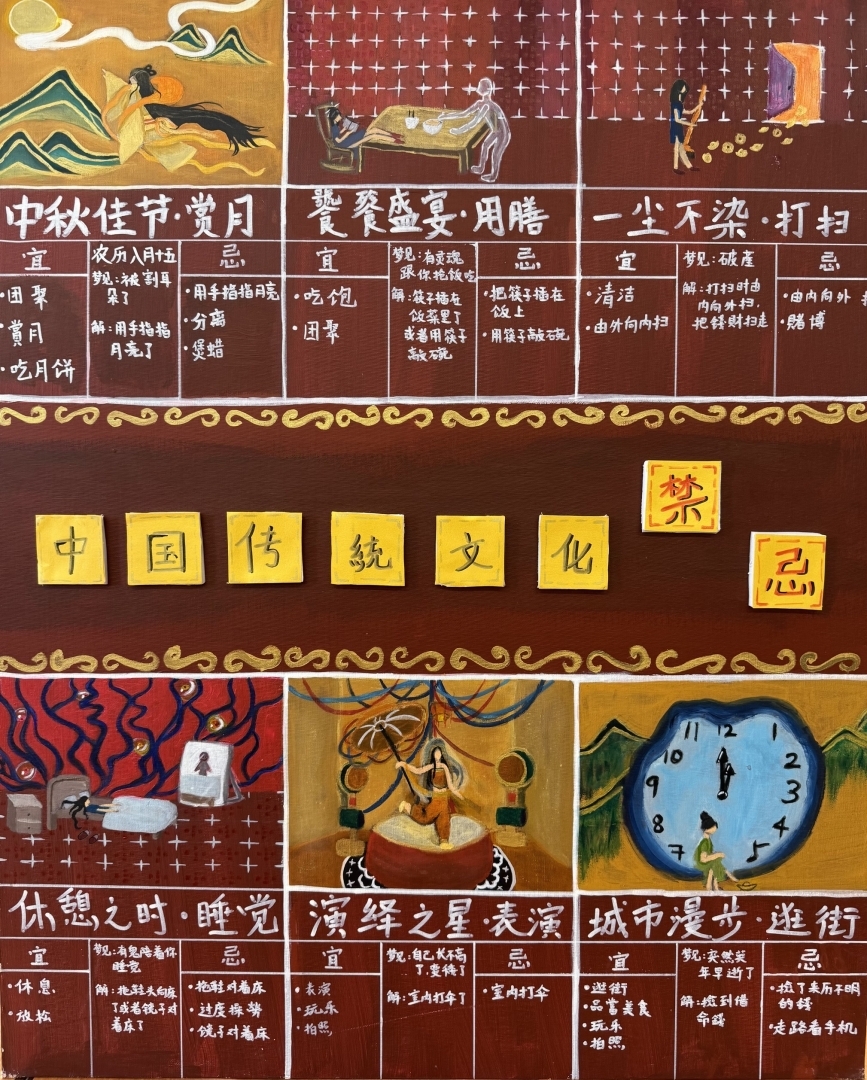 中秋佳节·赏月
宜
·团聚
·赏月
·吃月饼
农历八月十五
梦见:被割耳
朵了
解:用手指指
月亮了
忌
·用手指指月亮
·分离
·煲蜡
饕餮盛宴·用膳
宜
·吃饱
·团聚
梦见:有灵魂
跟你抢饭吃
解:筷子插在
饭菜里了
或者用筷子
敲碗
忌
·把筷子插在
饭上
·用筷子敲碗
一尘不染·打扫
宜
·清洁
·由外向内扫
梦见:破产
解:打扫时由
内向外扫,
把钱财扫走
忌
·由内向外
·赌博
中国传統文化禁忌
休憩之时·睡觉
宜
·休息
·放松
梦见:有鬼陪着你
睡觉
解:拖鞋头向床
了或者镜子对
着床了
忌
·拖鞋对着床
·过度操劳
·镜子对着床
演绎之星·表演
宜
·表演
·玩乐
·拍照
梦见:自己长不高
了,变矮了
解:室内打伞了
忌
·室内打伞
11 12 1
10 2
9 3
8 4
7 5
城市漫步·逛街
宜
·逛街
·品嘗美食
·玩乐
·拍照
梦见:突然英
年早逝了
解:捡到借
命錢
忌
·捡了来历不明
的錢
·走路看手机